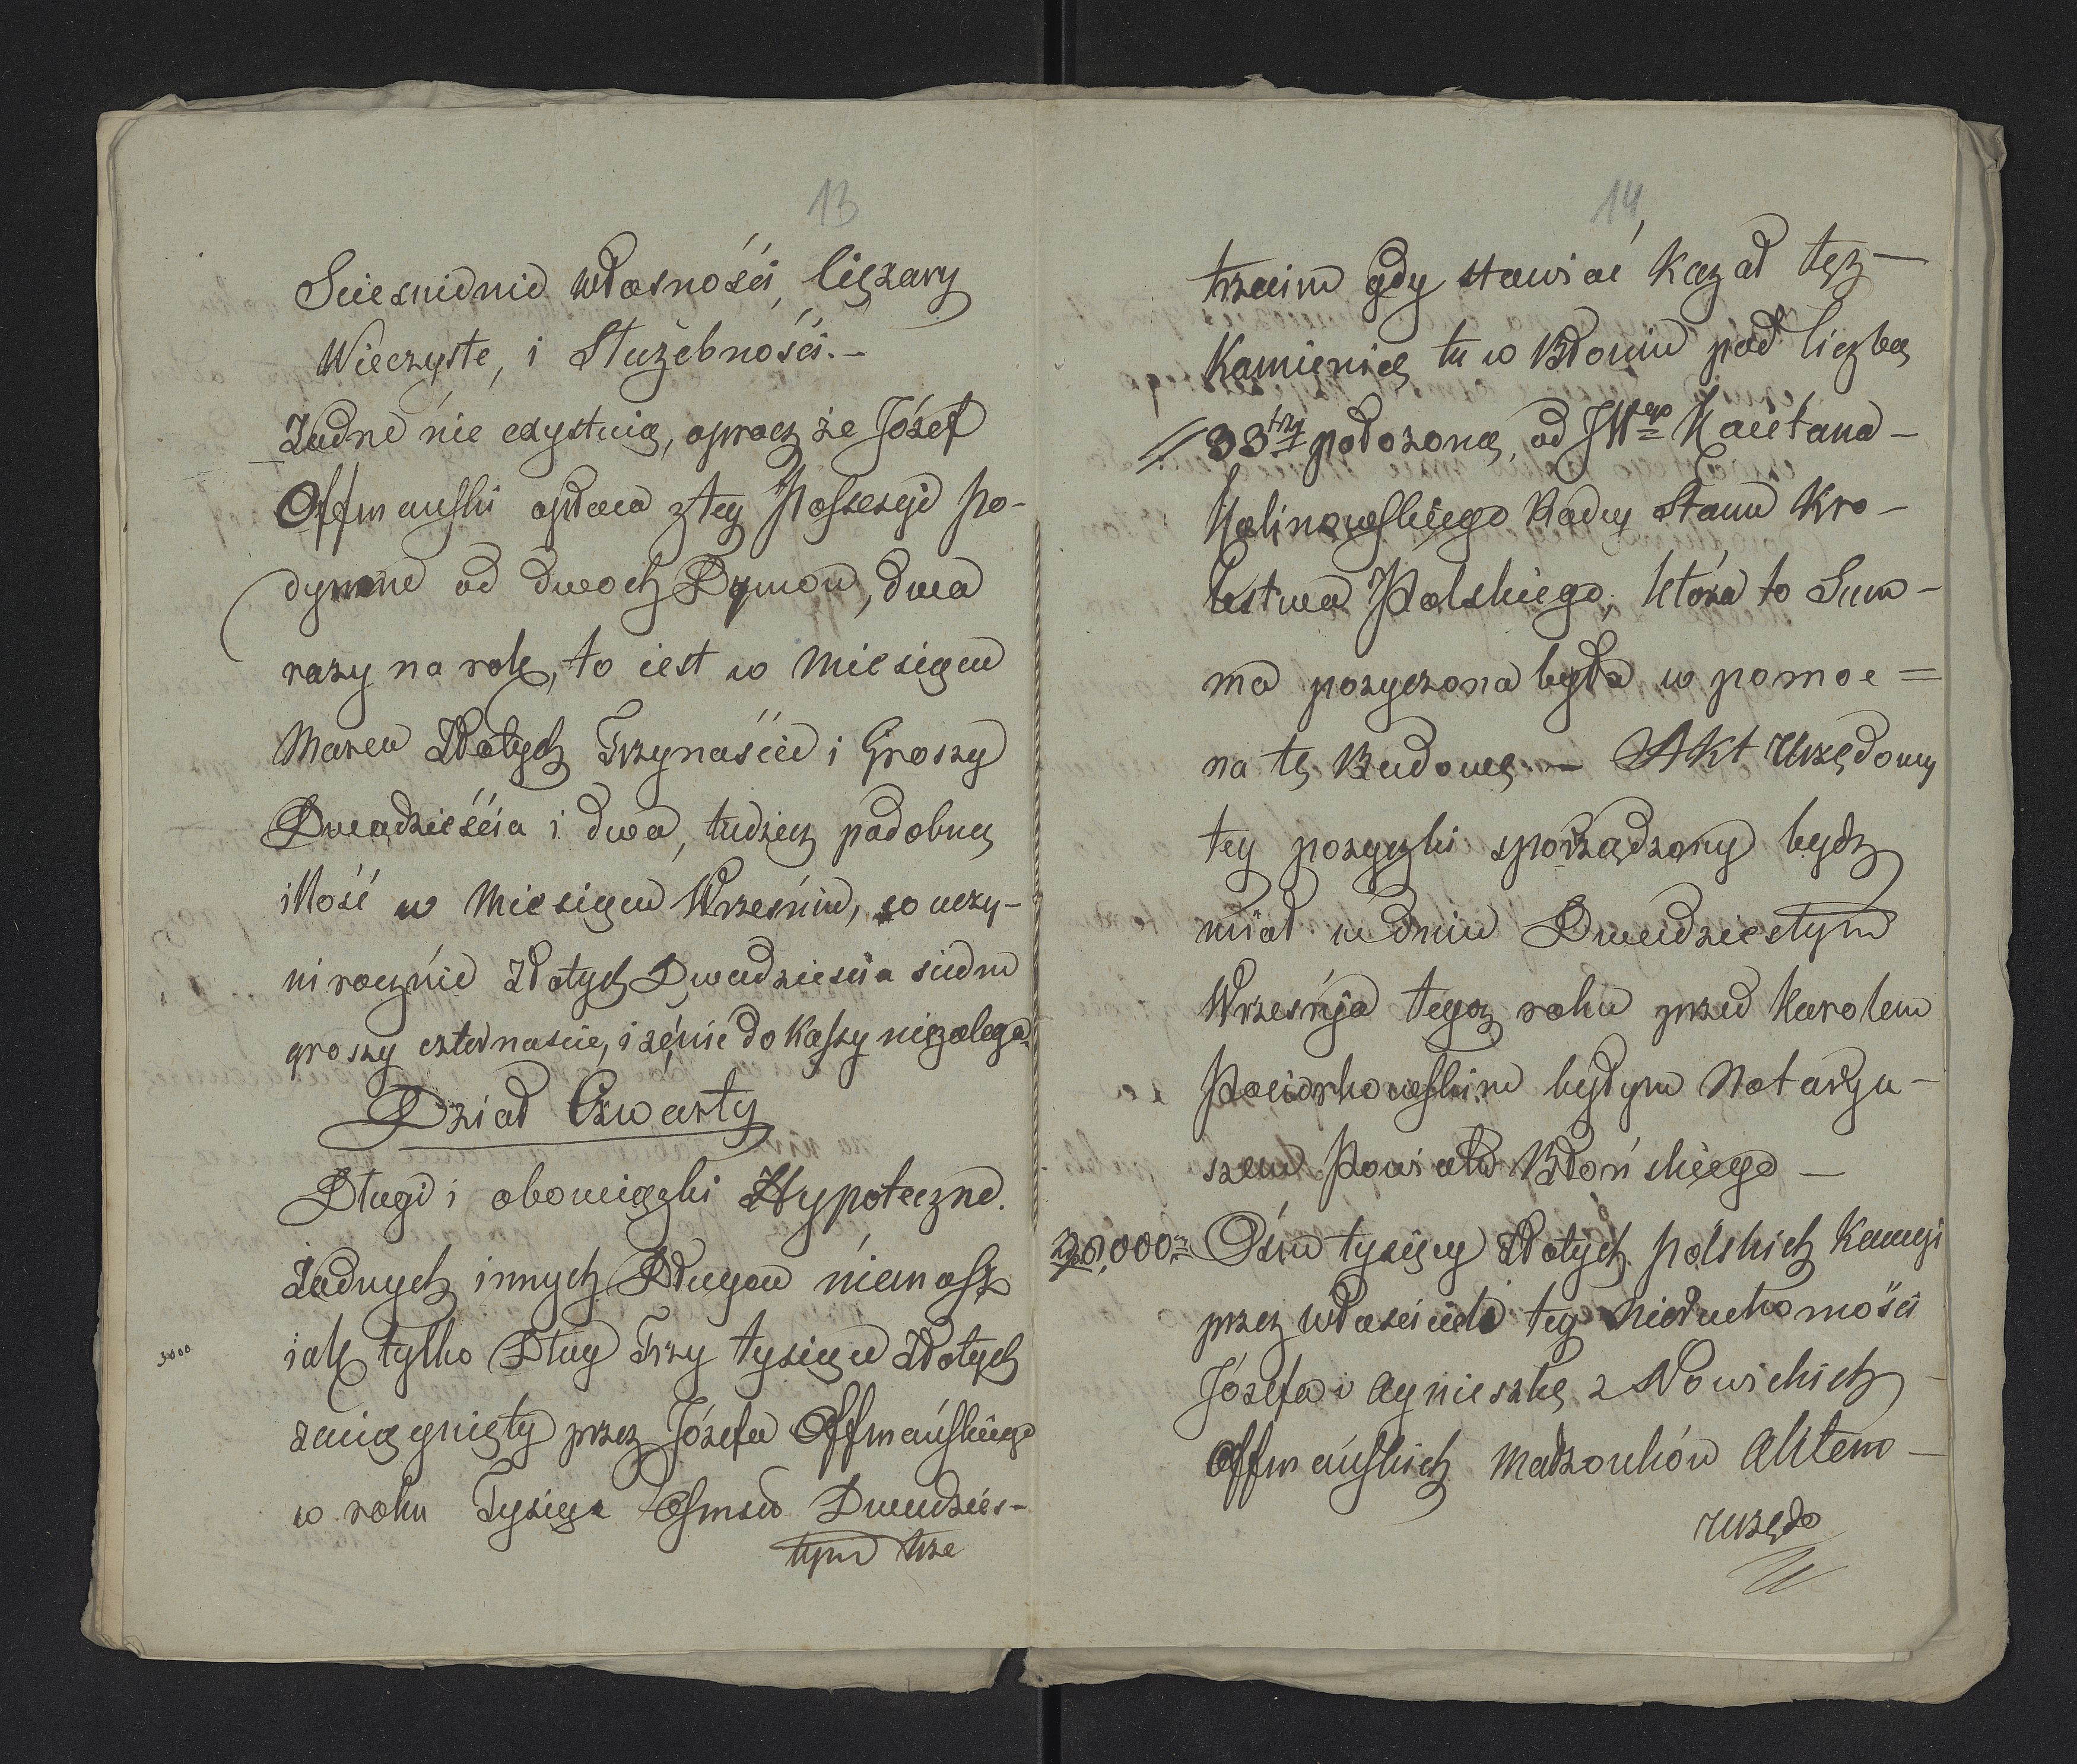 13
Sciesnienie własności, Ciężary
Wieczyste, i Służebności.-
Żadne nie exystuią, oprocz że Józef
Offmański opłaca z tey Possesyi po-
dymne od dwoch Dymow, dwa
razy na rok, to iest w Miesiącu
Marcu Złotych Trzynaście i Groszy
Dwadzieścia i dwa, tudziesz podobną
illość w Miesiącu Wrześniu, co uczy-
ni rocznie Złotych Dwadzieścia siedm
groszy czternaście, i że nic do Kassy nie zalega.
Dział Czwarty
Długi i obowiązki Hypoteczne.
Żadnych innych Długow niemasz
3000
iak tylko Dług Trzy tysiące Złotych
zaciągnięty przez Józefa Offmańskiego
w roku Tysiąc Osmset Dwudzies-
tym trze
14
trzecim gdy stawiać kazał tęż-
Kamienicę tu w Błoniu pod liczbą
33 trzy położoną, od JWgo Kaietana-
Kalinowskiego Radcy Stanu Kro-
lestwa Polskiego, która to Sum-
ma pozyczona była w pomoc =
na tę Budowę - Akt Urzędowy
tey pozyczki sporządzony bydz
miał w dniu Dwudziestym
Września tegoż roku przed Karolem
Paciorkowskim byłym Notaryu-
szem Powiatu Błońskiego -
20,000 Ośm tysięcy Złotych polskich Kaucyi
przez właścicieli tey Nieruchomości
Józefa i Agnieszkę z Nowickich
Offmańskich Małzonków Aktem-
Urzędo